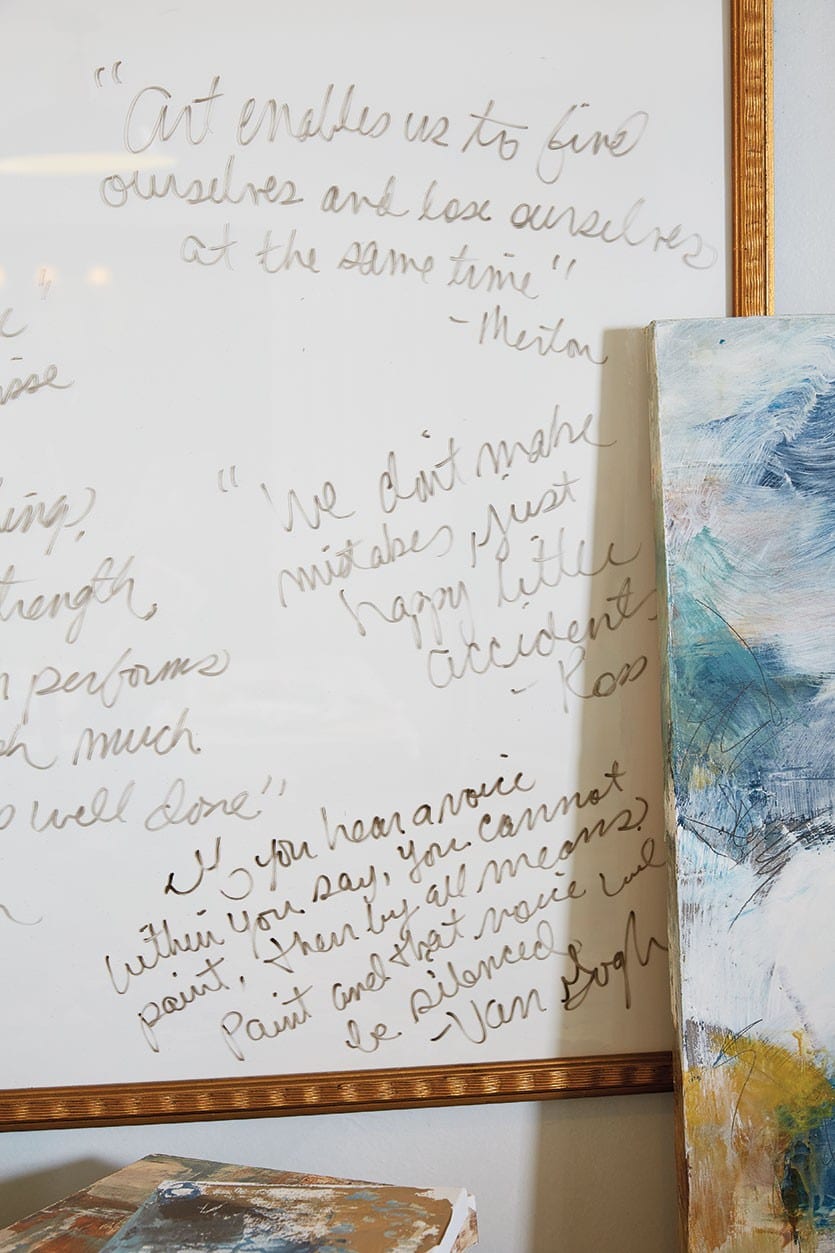 "Art enables us to find
ourselves and lose ourselves
at the same time"
- Merton
isse
"We don't make
mistakes, just
happy little
accidents.
- Ross
ing,
trength,
performs
much
well done"
If you hear a voice
within you say, you cannot
paint, then by all means
Paint and that voice will
be silenced.
- Van Gogh